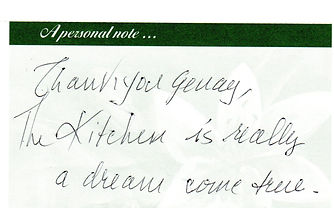 A personal note ...
Thank you Genay,
The Kitchen is really
a dream come true.